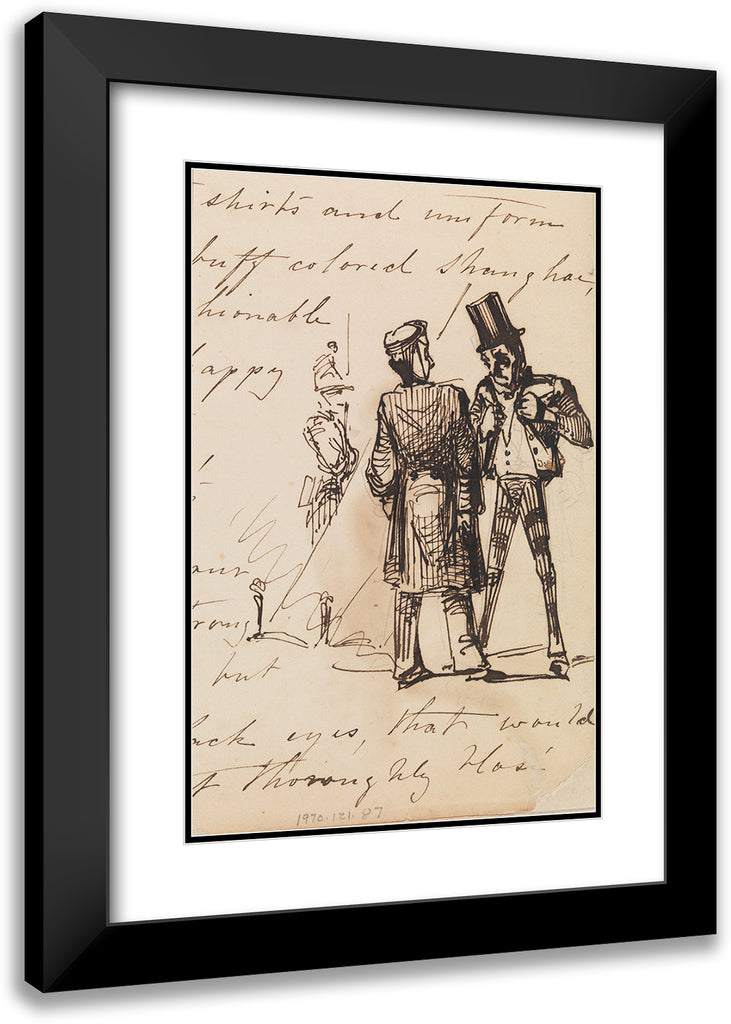 shirts and uniform
buff colored shanghae,
hionable
appy
but
eyes, that would
thoroughly blas
1970.121.87